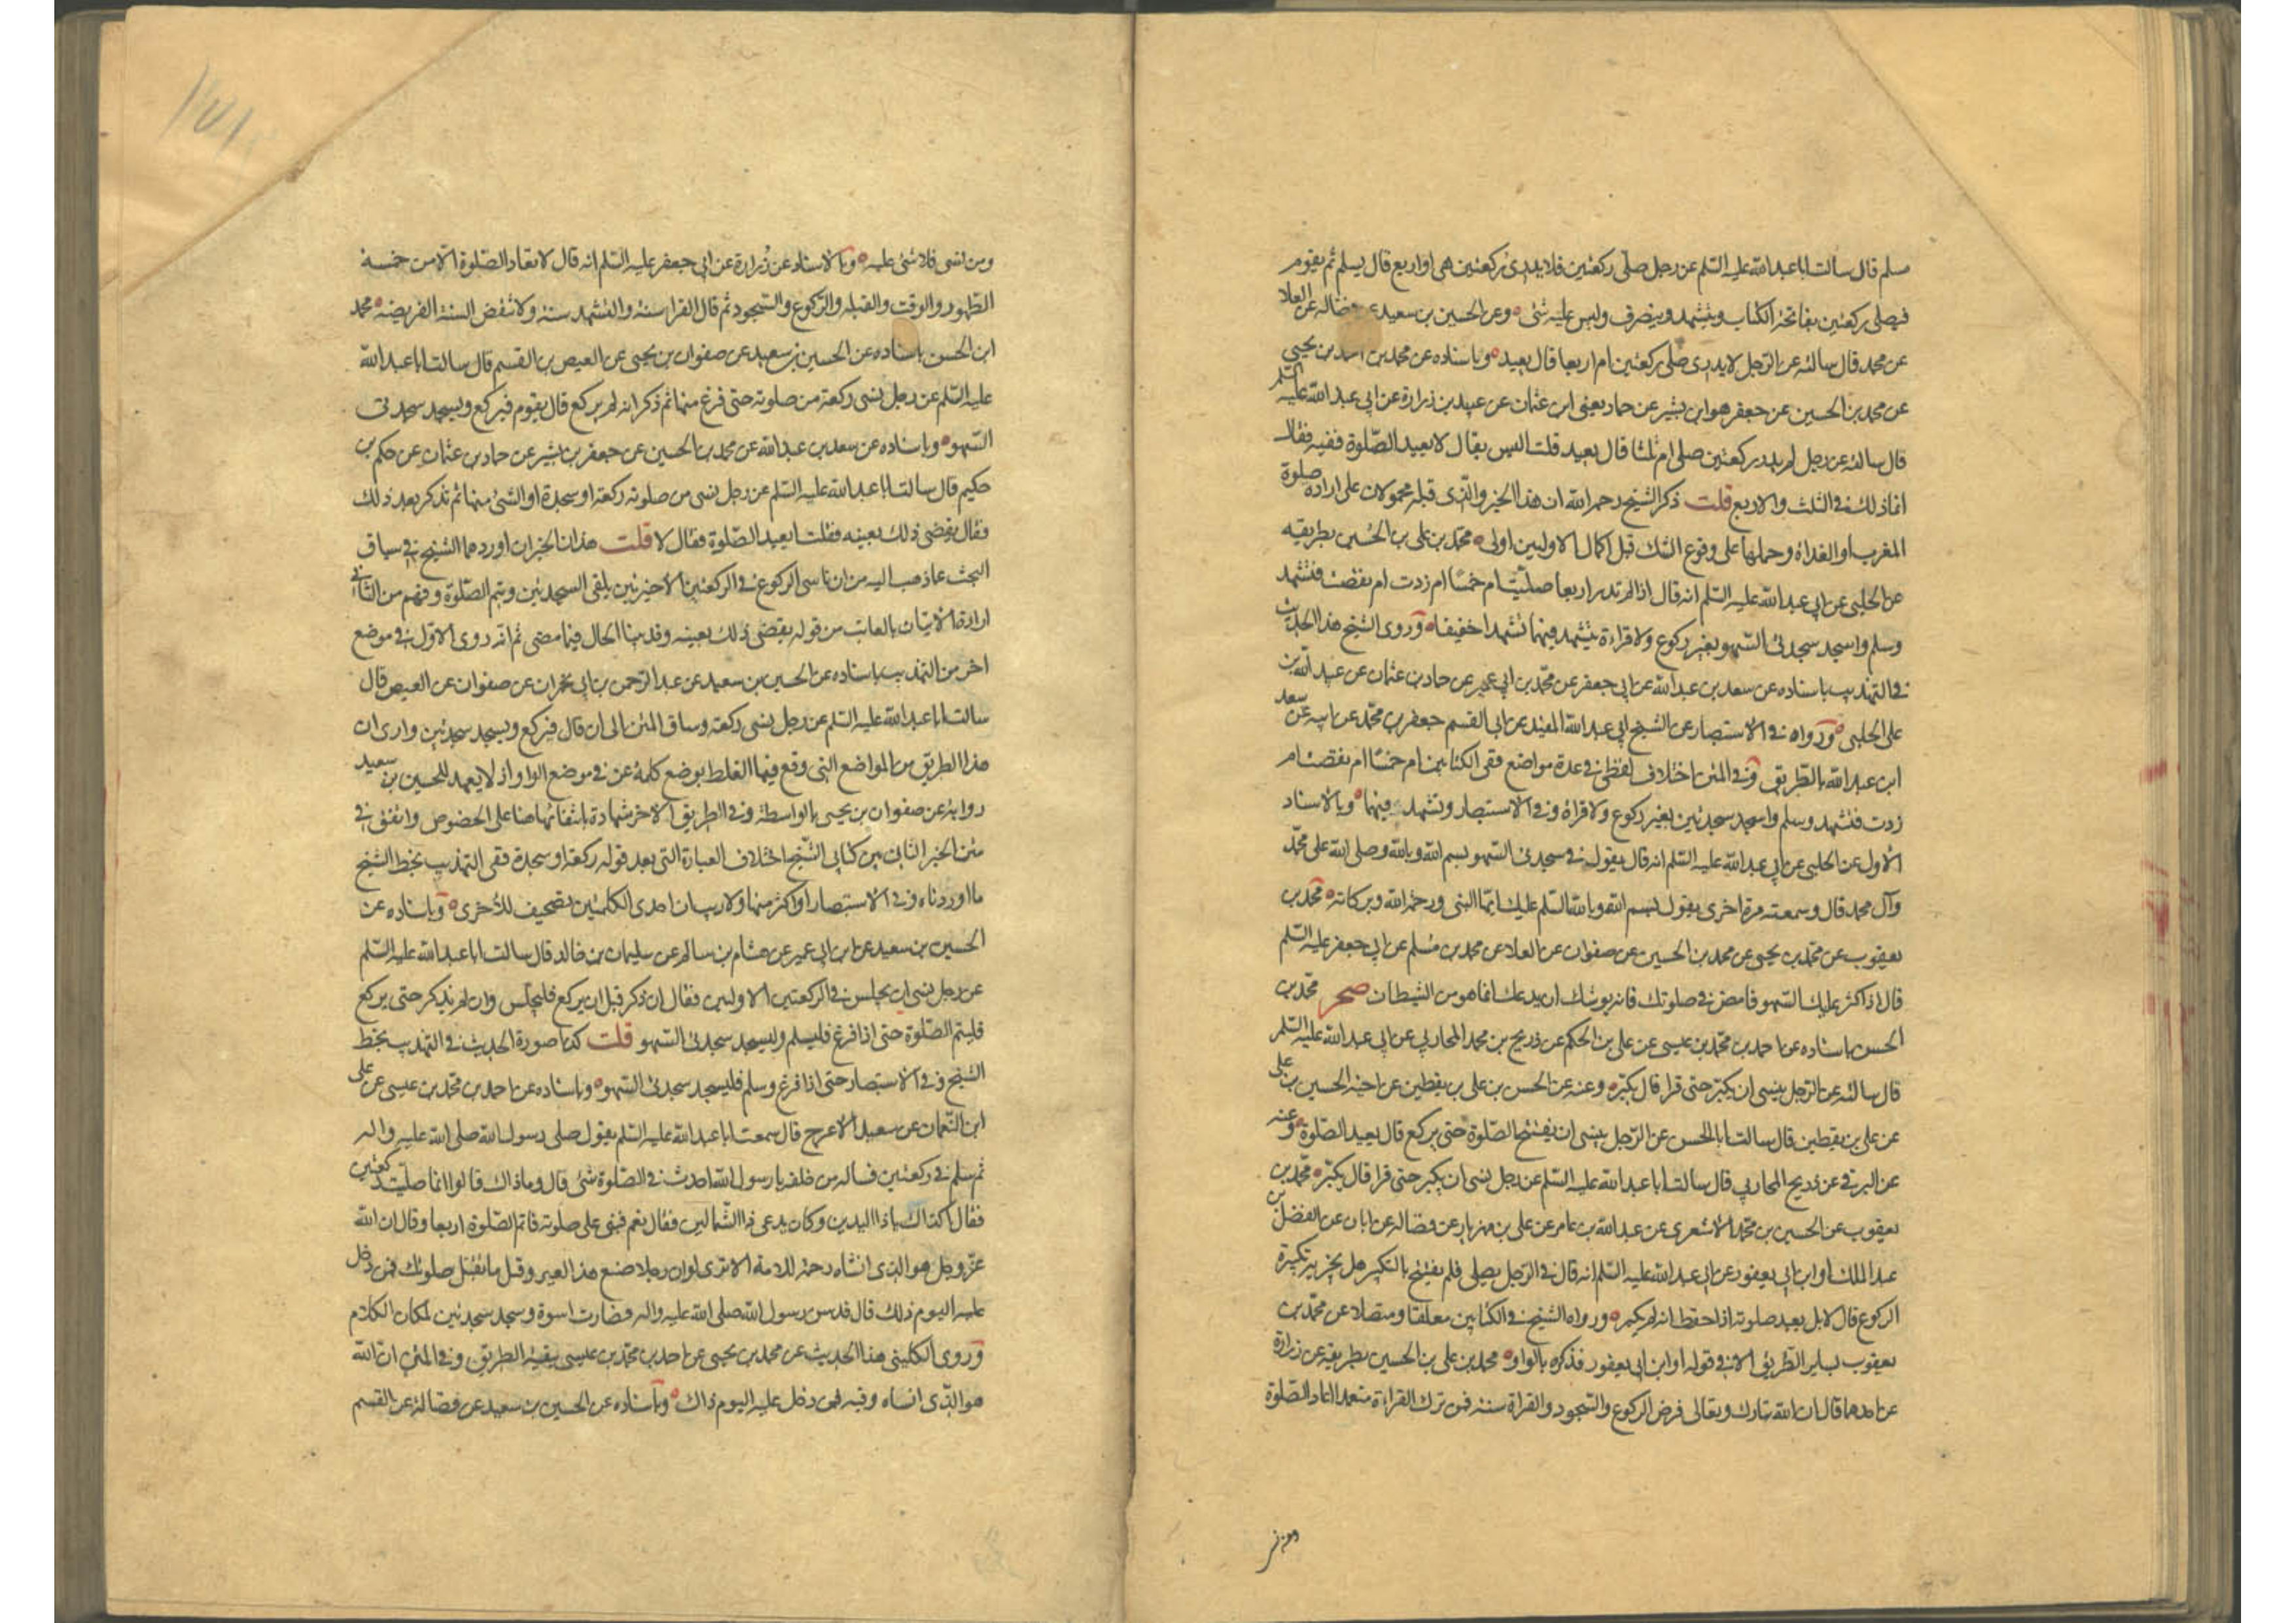 مسلم قال سالت ابا عبدالله عليه السّلم عن رجل صلّى ركعتين فلا يدرى ركعتين هى او اربع قال يسلم ثم يقوم
فيصلى ركعتين بفاتحة الكتاب ويتشهد وينصرف وليس عليه شئ وعن الحسين بن سعيد عن فضاله عن العلا
عن محمد قال سالته عن الرّجل لا يدرى صلى ركعتين ام اربعا قال يعيد وباسناده عن محمد بن احمد بن يحيى
عن محمد بن الحسين عن جعفر هو ابن بشير عن حماد يعنى ابن عثمان عن عبيد بن زرارة عن ابى عبدالله عليه السّلم
قال سالته عن رجل لم يدر ركعتين صلى ام ثلثا قال يعيد قلت اليس يقال لا يعيد الصّلوة فقيه فقال
انما ذلك فى الثلث والاربع قلت ذكر الشيخ رحمه الله ان هذا الخبر والذى قبله محمولان على ارادة صلوة
المغرب او الغداة وحملها على وقوع الشك قبل اكمال الاوليين اولى محمّد بن على بن الحسين بطريقه
عن الحلبى عن ابى عبدالله عليه السّلم انه قال اذا لم تدر اربعا صلّيت ام خمسًا ام زدت ام نقصت فتشهد
وسلم واسجد سجدتى السّهو بغير ركوع ولا قراءة يتشهد فيهما تشهدا خفيفا وروى الشيخ هذا الحديث
فى التهذيب باسناده عن سعد بن عبدالله عن ابى جعفر عن محمّد بن ابى عمير عن حماد بن عثمان عن عبيد الله بن
على الحلبى ورواه فى الاستبصار عن الشيخ ابى عبدالله المفيد عن ابى القسم جعفر بن محمّد عن ابيه عن سعد
ابن عبدالله بالطّريق وفى المتن اختلاف لفظى فى عدة مواضع ففى الكتابين ام خمسًا ام نقصت ام
زدت فتشهد وسلم واسجد سجدتين بغير ركوع ولا قراة وفى الاستبصار وتشهد فيهما وبالاسناد
الاول عن الحلبى عن ابى عبدالله عليه السّلم انه قال يقول فى سجدتى السّهو بسم الله وبالله وصلى الله على محمّد
وآل محمد قال وسمعته مرة اخرى يقول بسم الله وبالله السّلم عليك ايّها النبى ورحمة الله وبركاته محمّد بن
يعقوب عن محمّد بن يحيى عن محمد بن الحسين عن صفوان عن العلا عن محمد بن مسلم عن ابى جعفر عليه السّلم
قال اذا كثر عليك السّهو فامض فى صلوتك فانه يوشك ان يدعك انما هو من الشيطان صحر محمّد بن
الحسن باسناده عن احمد بن محمّد بن عيسى عن على بن الحكم عن ذريح بن محمد المحاربى عن ابى عبدالله عليه السّلم
قال سالته عن الرّجل ينسى ان يكبّر حتى قرا قال يكبّر وعنه عن الحسن بن على بن يقطين عن اخيه الحسين بن على
عن على بن يقطين قال سالت ابا الحسن عن الرّجل ينسى ان يفتتح الصّلوة حتى يركع قال يعيد الصّلوة وعنه
عن البرقى عن ذريح المحاربى قال سالت ابا عبدالله عليه السّلم عن رجل نسى ان يكبر حتى قرا قال يكبّر محمّد بن
يعقوب عن الحسين بن محمّد الاشعرى عن عبدالله بن عامر عن على بن مهزيار عن فضاله عن ابان عن الفضل بن
عبد الملك او ابن ابى يعفور عن ابى عبدالله عليه السّلم انه قال فى الرّجل يصلى فلم يفتتح بالتكبير هل يجزيه تكبيرة
الركوع قال لا بل يعيد صلوته اذا حفظ انه لم يكبر ورواه الشيخ فى الكتابين معلقا ومتصلا عن محمّد بن
يعقوب بساير الطّريق الا فى قوله او ابن ابى يعفور فذكره بالواو محمد بن على بن الحسين بطريقه عن زرارة
عن احدهما قال ان الله تبارك وتعالى فرض الركوع والسّجود والقراة سنة فمن ترك القراءة متعمدا اعاد الصّلوة
ومن نسى
ومن نسى فلا شئ عليه وبالاسناد عن زُرارة عن ابى جعفر عليه السّلم انه قال لا تعاد الصّلوة الّا من خمسة
الطّهور والوقت والقبله والرّكوع والسّجود ثم قال القراءة سنة والتشهد سنة ولا تنقض السنة الفريضة محمد
ابن الحسن باسناده عن الحسين بن سعيد عن صفوان بن يحيى عن العيص بن القسم قال سالت ابا عبدالله
عليه السّلم عن رجل نسى ركعة من صلوته حتى فرغ منها ثم ذكر انه لم يركع قال يقوم فيركع ويسجد سجدتى
السّهو وباسناده عن سعد بن عبدالله عن محمد بن الحسين عن جعفر بن بشير عن حماد بن عثمان عن حكم بن
حكيم قال سالت ابا عبدالله عليه السّلم عن رجل نسى من صلوته ركعة او سجدة او الشئ منها ثم تذكر بعد ذلك
فقال يقضى ذلك بعينه فقلت ايعيد الصّلوة فقال لا قلت هذان الخبران اوردهما الشيخ فى سياق
البحث عما ذهب اليه من ان ناسى الركوع فى الركعتين الاخيرتين يلقى السجدتين ويتم الصّلوة وفهم من الثانى
ارادة الاتيان بالفائت من قوله يقضى ذلك بعينه وقد بينا الحال فيما مضى ثم انه روى الاوّل فى موضع
اخر من التهذيب باسناده عن الحسين بن سعيد عن عبد الرّحمن بن ابى نجران عن صفوان عن العيص قال
سالت ابا عبدالله عليه السّلم عن رجل نسى ركعة وساق المتن الى ان قال فيركع ويسجد سجدتين وارى ان
هذا الطريق من المواضع التى وقع فيها الغلط بوضع كلمة عن فى موضع الواو اذ لا يعهد للحسين بن سعيد
رواية عن صفوان بن يحيى بالواسطة وفى الطريق الاخر شهادة بانتفائها هنا على الخصوص واتفق فى
متن الخبر الثانى بين كتابى الشّيخ اختلاف العبارة التى بعد قوله ركعة او سجدة ففى التهذيب بخط الشيخ
ما اوردناه وفى الاستبصار او اكثر منها ولا ريب ان احدى الكلمتين تصحيف للاخرى وباسناده عن
الحسين بن سعيد عن ابن ابى عمير عن هشام بن سالم عن سليمان بن خالد قال سالت ابا عبدالله عليه السّلم
عن رجل نسى ان يجلس فى الركعتين الاوليين فقال ان ذكر قبل ان يركع فليجلس وان لم يذكر حتى يركع
فليتم الصّلوة حتى اذا فرغ فليسلم وليسجد سجدتى السّهو قلت كذا صورة الحديث فى التهذيب بخط
الشيخ وفى الاستبصار حتى اذا فرغ وسلم فليسجد سجدتى السّهو وباسناده عن احمد بن محمّد بن عيسى عن على
ابن النّعمان عن سعيد الاعرج قال سمعت ابا عبدالله عليه السّلم يقول صلى رسول الله صلى الله عليه واله
ثم سلم فى ركعتين فساله من خلفه يا رسول الله احدث فى الصّلوة شئ قال وما ذاك قالوا انما صلّيت ركعتين
فقال اكذاك يا ذا اليدين وكان يدعى ذا الشّمالين فقال نعم فبنى على صلوته فاتم الصّلوة اربعا وقال ان الله
عزّ وجل هو الذى انساه رحمة للامة الا ترى لو ان رجلا صنع هذا لعير وقيل ما تقبل صلوتك فمن دخل
عليه اليوم ذلك قال قد سن رسول الله صلى الله عليه واله وصارت اسوة وسجد سجدتين لمكان الكلام
وروى الكلينى هذا الحديث عن محمد بن يحيى عن احمد بن محمّد بن عيسى ببقية الطريق وفى المتن ان الله
هو الذى انساه وفيه فمن دخل عليه اليوم ذاك وباسناده عن الحسين بن سعيد عن فضالة عن القسم